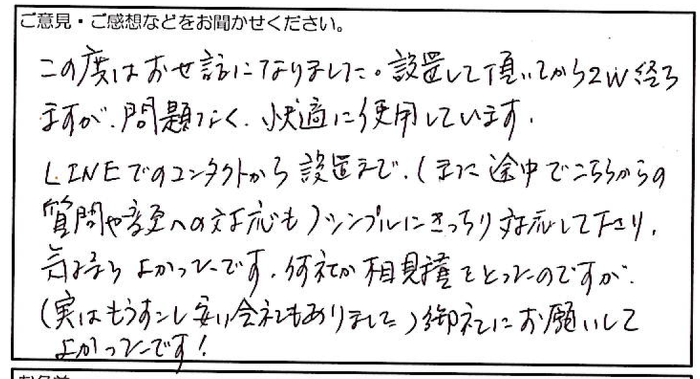 ご意見・ご感想などをお聞かせください。
この度はお世話になりました。設置して頂いてから2W経ち
ますが、問題なく、快適に使用しています。
LINEでのコンタクトから設置まで、(また途中でこちらからの
質問や変更への対応も)シンプルにきっちり対応して下さり、
気持ちよかったです。何社か相見積をとったのですが、
(実はもう少し安い会社もありました)御社にお願いして
よかったです!